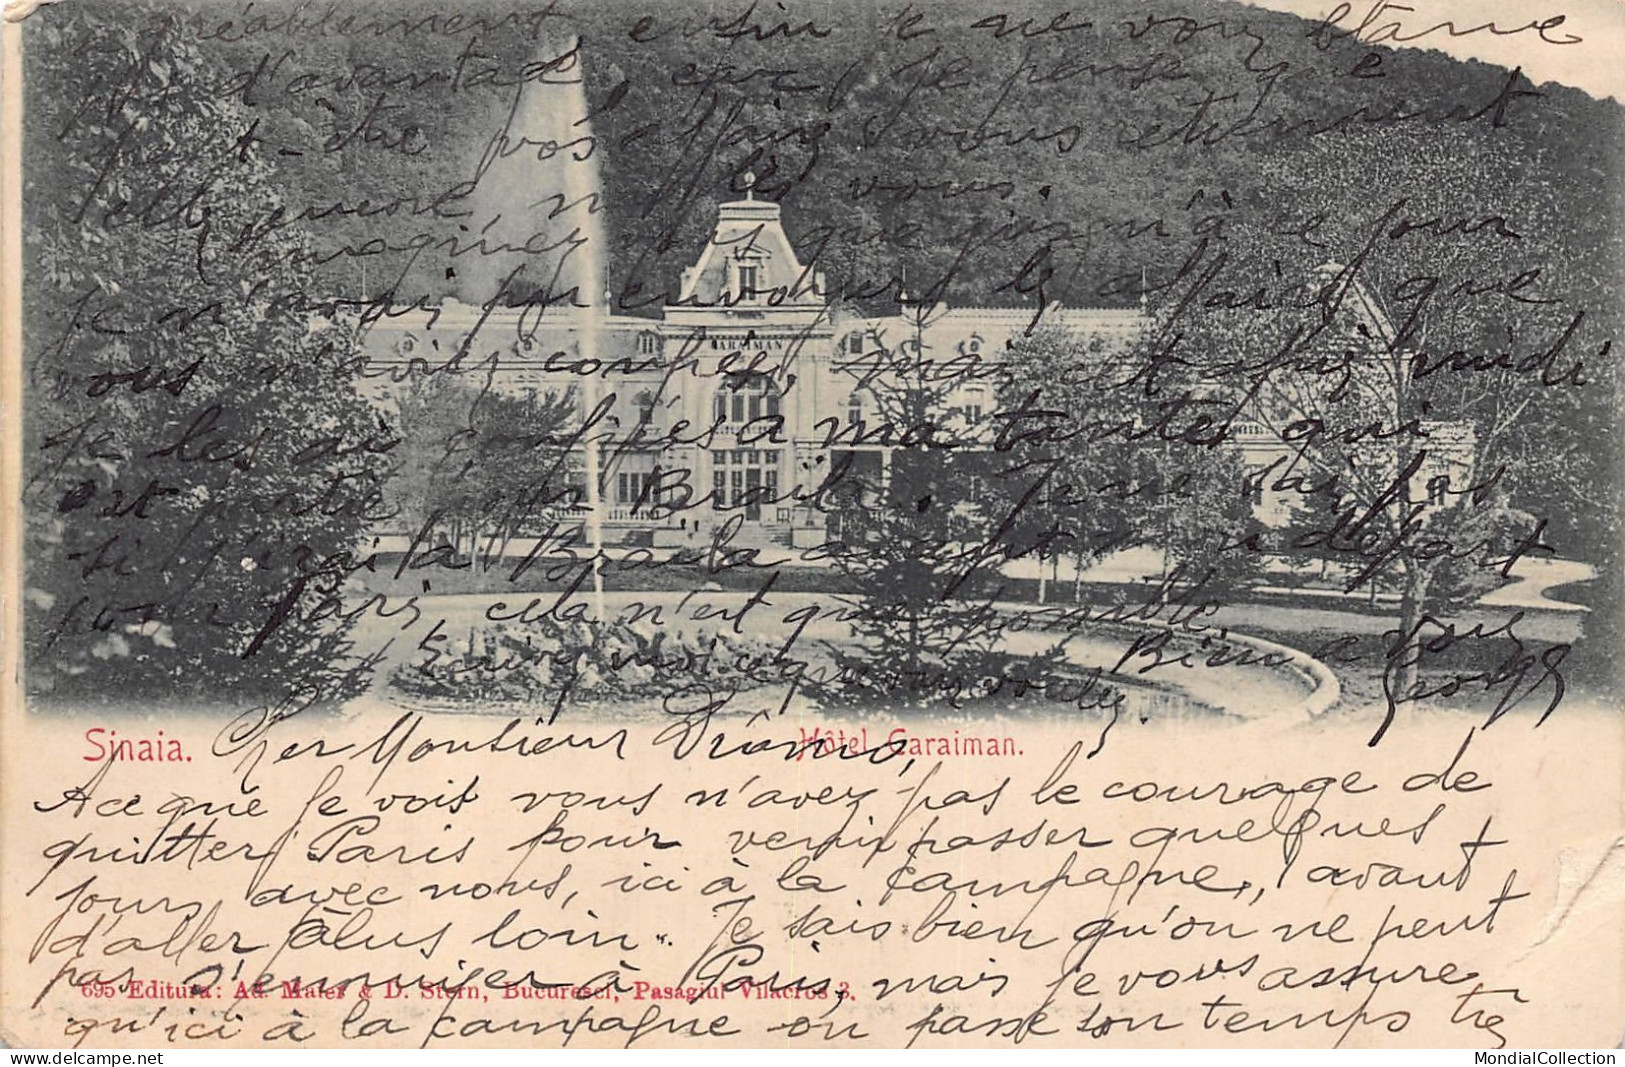 agréablement enfin je ne vous blâme
pas d'avantage, car, je pense que
peut-être vos affaires vous retiennent
telles
Imaginez vous que jusqu'à ce jour
je n'avais pu envoyer les affaires que
vous m'aviez confiés, mais cet après midi
je les ai confiés à ma tante qui
est partie pour Braïla. Je ne sais pas
si j'irai à Braëla avant départ
pour Paris, cela n'est que possible
Écrivez moi ce que vous voulez.
Bien a vous
George
CARAIMAN
Sinaia. Hôtel Caraiman.
Cher Monsieur Diamo,
A ce que je vois vous n'avez pas le courage de
quitter Paris pour venir passer quelques
jours avec nous, ici à la campagne, avant
d'aller plus loin. Je sais bien qu'on ne peut
pas s'ennuyer à Paris, mais je vous assure
695 Editura: Ad. Maier & D. Stern, Bucuresci, Pasagiul Vilacros 3.
qu'ici à la campagne on passe son temps très
MondialCollection